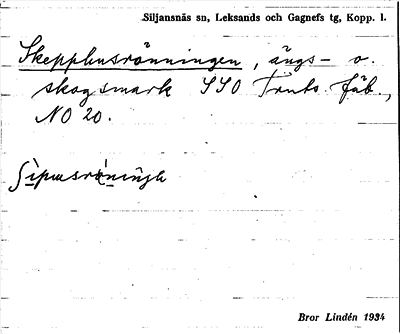 Siljansnäs sn, Leksands och Gagnefs tg, Kopp. l.
Skepphusrönningen, ängs- o.
skogsmark SSO Truts fäb.,
NO 20.
Bror Lindén 1934